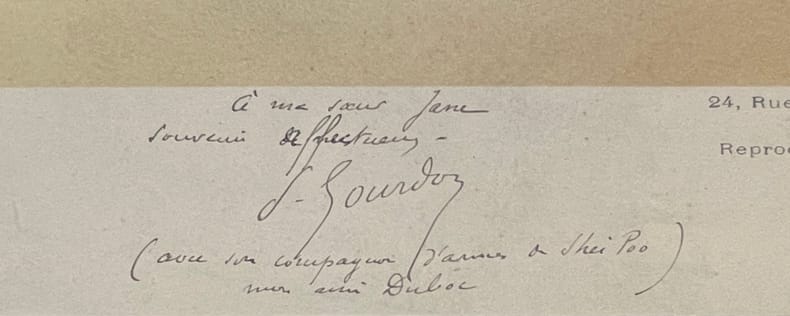 à ma sœur Jane
souvenir affectueux -
24, Rue
Reproc
S. Gourdon
(avec son compagnon d'armes de Sheï Poo)
mon ami Duboc